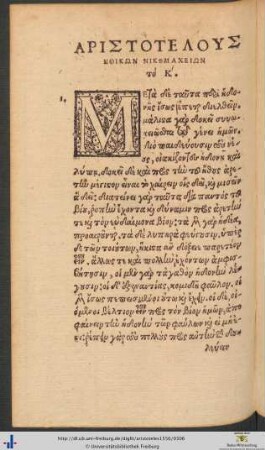 ΑΡΙΣΤΟΤΕΛΟΥΣ
ΗΘΙΚΩΝ ΝΙΚΟΜΑΧΕΙΩΝ
τὸ Κ.
1.
ΜΕΤὰ δὲ ταῦτα περὶ ἡδο
νῆς ἴσως ἕπεται διελθεῖν.
μάλιστα γὰρ δοκεῖ συν
ῳκειῶσθαι τῷ γένει ἡμῶν.
διὸ παιδεύουσιν τοὺς νέ
ους, οἰακίζοντες ἡδονῇ καὶ
λύπῃ. δοκεῖ δὲ καὶ πρὸς τὴν τοῦ ἤθους ἀρε
τὴν μέγιστον εἶναι τὸ χαίρειν οἷς δεῖ, καὶ μισεῖν
ἃ δεῖ. διατείνει γὰρ ταῦτα διὰ παντὸς τοῦ
βίου, ῥοπὴν ἔχοντα καὶ δύναμιν πρὸς ἀρετὴν
τε καὶ τὸν εὐδαίμονα βίον. τὰ μὲν γὰρ ἡδέα,
προαιροῦνται, τὰ δὲ λυπηρὰ φεύγουσιν. ὑπὲρ
δὲ τῶν τοιούτων, ἥκιστ' ἂν δόξειεν παρετέον
εἶναι, ἄλλως τε καὶ πολλὴν ἐχόντων ἀμφισ
βήτησιν. οἱ μὲν γὰρ τἀγαθὸν ἡδονὴν λέ
γουσιν. οἱ δ' ἐξεναντίας, κομιδῇ φαῦλον. οἱ
μὲν ἴσως πεπεισμένοι οὕτω καὶ ἔχειν. οἱ δὲ, οἰ
όμενοι βέλτιον εἶναι πρὸς τὸν βίον ἡμῶν, ἀπο
φαίνειν τὴν ἡδονὴν τῶν φαύλων καὶ εἰ μὴ ἐ
στίν. ῥέπειν γὰρ τοὺς πολλοὺς πρὸς αὐτὴν καὶ δου
λεύειν
http://dl.ub.uni-freiburg.de/diglit/aristoteles1556/0308
© Universitätsbibliothek Freiburg